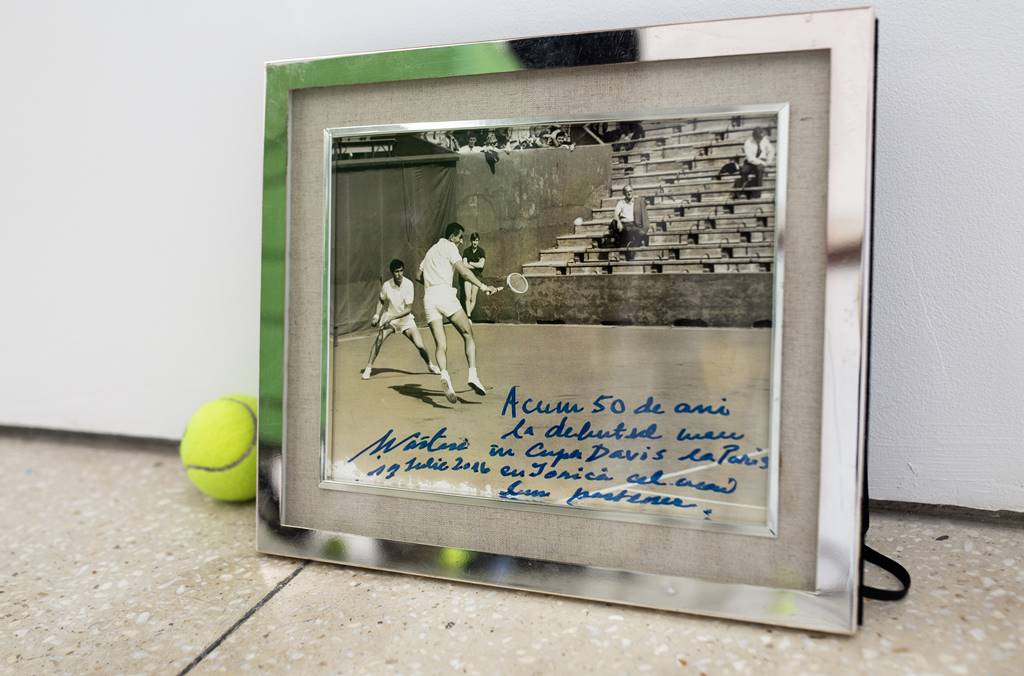 Acum 50 de ani
la debutul meu
in Cupa Davis la Paris
Năstase
19 Iulie 2016 cu Tiriac cel mai
bun partener.